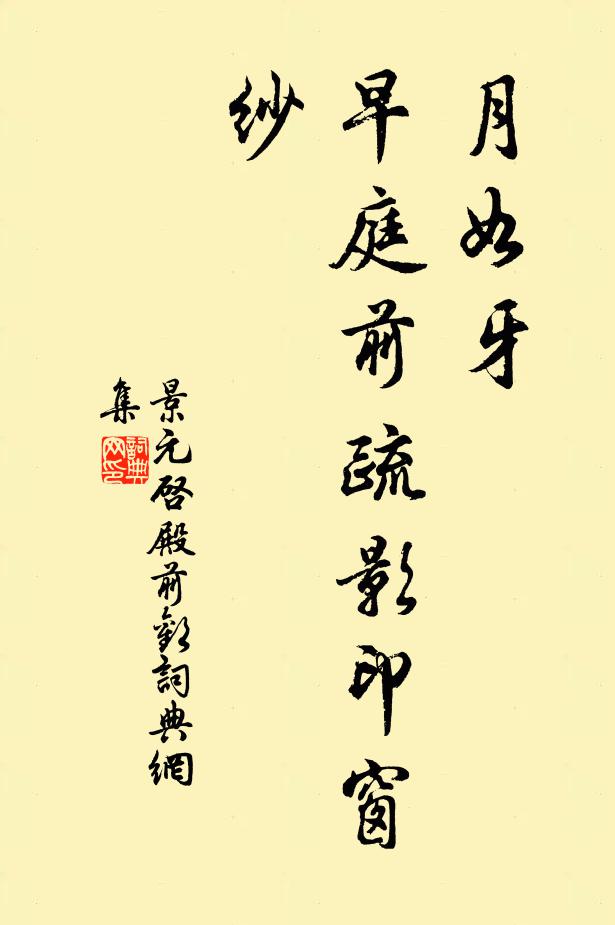 月如牙
早庭前疏影印窗
紗
景元啓殿前歡詞典網
集
詞典
网印